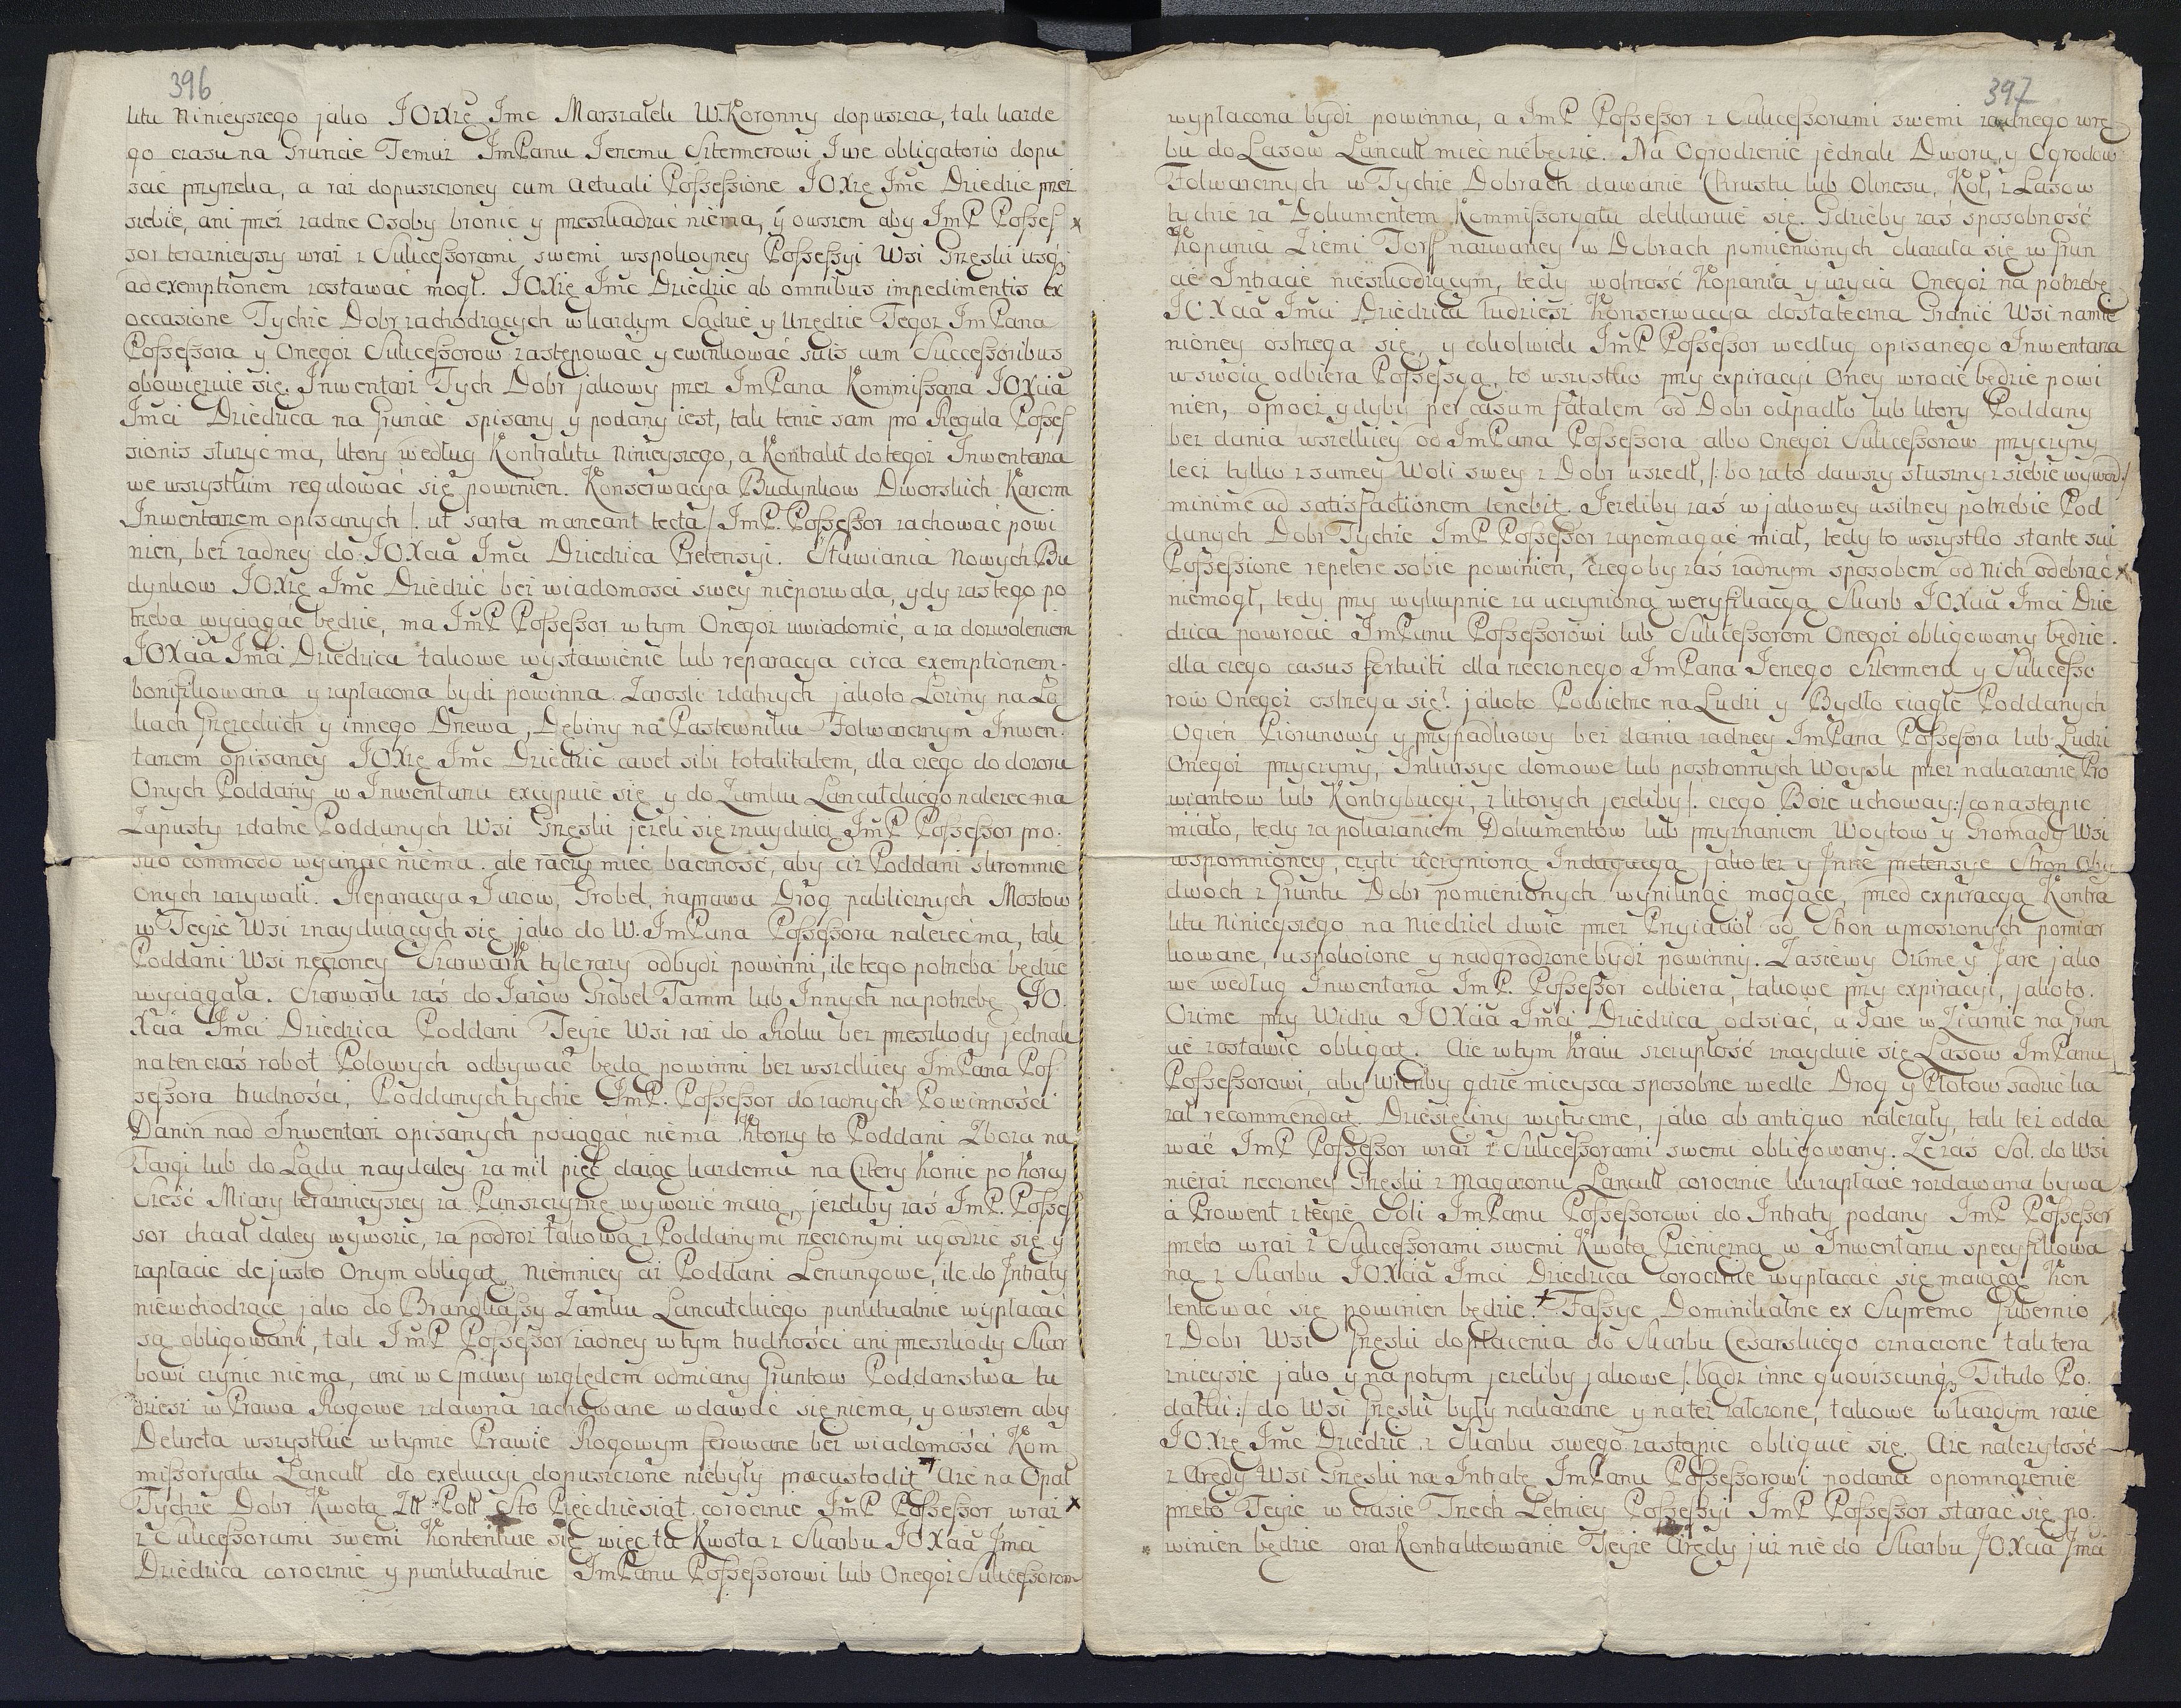 396
ktu Ninieyszego jako JOXże Jmc Marszałek W.Koronny dopuszcza, tak każde
go czasu na Gruncie Temuż JmPanu Jerzemu Sztermerowi Jure obligatorio dopu
scić przyrzeka, a raz dopuszczoney cum actuali Possessione JOXże Jmc Dziedzic przez
siebie, ani przez żadne Osoby bronić y przeszkadzać niema, y owszem aby JmP Posses
sor teraznieyszy wraz z Sukcessorami swemi wspokoyney Possessyi Wsi Grzęski usq
ad exemptionem zostawać mogł. JOXże Jmc Dziedzic ab omnibus impedimentis ex
occasione Tychże Dobr zachodzących w każdym Sądzie y Urzędzie Tegoż JmPana
Possessora y Onegoż Sukcessorow zastępować y ewinkować suis cum Successoribus
obowięzuie się. Inwentarz Tych Dobr jakowy przez JmPana Kommissarza JOXcia
Jmci Dziedzica na Gruncie spisany y podany iest, tak tenże sam pro Regula Posses
sionis służyć ma, ktory według Kontraktu Ninieyszego, a Kontrakt do tegoż Inwentarza
we wszystkim regulować się powinien. Konserwacya Budynkow Dworskich Karczm
Inwentarzem opisanych /. ut sarta maneant tecta / JmP. Possessor zachować powi
nien, bez żadney do JOXcia Jmci Dziedzica Pretensyi. Stawiania Nowych Bu
dynkow JOXże Jmc Dziedzic bez wiadomosci swey niepozwala, gdy zas tego po
trzeba wyciągać będzie, ma JmP Possessor w tym Onegoż uwiadomić, a za dozwoleniem
JOXcia Jmci Dziedzica takowe wystawienie lub reparacya circa exemptionem
bonifikowana y zapłacona bydź powinna. Zarosli zdatnych jakoto Łoziny na Łą
kach Grzęzkich y innego Drzewa, Dębiny na Pastewniku Folwarcznym Inwen
tarzem opisaney JOXże Jmc Dziedzic cavet sibi totalitatem, dla czego do dozoru
Onych Poddany w Inwentarzu excypuie się y do Zamku Łancutskiego należeć ma
Zapusty zdatne Poddanych Wsi Grzęski jeżeli się znayduią JmP Possessor pro
suo commodo wycinać niema. ale raczy mieć baczność, aby ciż Poddani skromnie
Onych zażywali. Reparacya Jazow, Grobel, naprawa Drog publicznych Mostow
w Teyże Wsi znayduiących się jako do W. JmPana Possessora należeć ma, tak
Poddani Wsi rzeczoney Szarwark tyle razy odbydź powinni, ile tego potrzeba będzie
wyciągała. Szarwark zaś do Jazow Grobel Tamm lub Innych na potrzebę JO.
Xcia Jmci Dziedzica Poddani Teyże Wsi raz do Roku bez przeszkody jednak
na ten czas robot Polowych odbywać będą powinni bez wszelkiey JmPana Pos
sessora trudności, Poddanych tychże JmP. Possessor do żadnych Powinności
Danin nad Inwentarz opisanych pociągać niema Ktorzy to Poddani Zboża na
Targi lub do Lądu naydaley za mil pięć daiąc każdemu na Cztery Konie po Korcy
Sześć Miary teraznieyszey za Panszczyznę wywozić maią, jeżeliby zaś JmP. Posses
sor chciał daley wywozić, za podroż takową z Poddanymi rzeczonymi ugodzić się y
zapłacić de justo Onym obligat. Niemniey ciż Poddani Lenungowe, ile do Intraty
niewchodzące jako do Zamku Łancutskiego punktualnie wypłacać
są obligowani, tak JmP Possessor żadney w tym trudności ani przeszkody Skar
bowi czynić niema, ani w Sprawy względem odmiany Gruntow Poddanstwa tu
dzież w Prawa Rogowe zdawna zachowane wdawać się niema, y owszem aby
Dekreta wszystkie w tymże Prawie Rogowym ferowane bez wiadomości Kom
missoryatu Łancutt do exekucyi dopuszczone niebyły præcustodit. Aże na Opał
Tychże Dobr Kwotą Złł Poll Sto Pięcdziesiąt corocznie JmP Possessor wraz
z Sukcessorami swemi Kontentuie się więc ta Kwota z Skarbu JOXcia Jmci
Dziedzica corocznie y punktualnie JmPanu Possessorowi lub Onegoż Sukcessorom
397
wypłacona bydź powinna, a JmP Possessor z Sukcessorami swemi żadnego wrę
bu do Lasow Łancutt mieć niebędzie. Na Ogrodzenie jednak Dworu, y Ogrodow
Folwarcznych w Tychże Dobrach dawanie Chrustu lub Okrzesu, Koł, z Lasow
tychże za Dokumentem Kommissoryatu deklaruie się. Gdzieby zaś sposobność
Kopania Ziemi Torf nazwaney w Dobrach pomienionych okazała się w Grun
cie Intracie nieszkodzącym, tedy wolność Kopania y użycia Onegoż na potrzebę
JOXcia Jmci Dziedzica tudziesz Konserwacya dostateczna Granic Wsi namie
nioney ostrzega się, y cokolwiek JmP Possessor według opisanego Inwentarza
w swoią odbiera Possessyą, to wszystko przy expiracyi Oney wrocić będzie powi
nien, oprocz gdyby per casum fatalem od Dobr odpadło lub ktory Poddany
bez dania wszelkiey od JmPana Possessora albo Onegoż Sukcessorow przyczyny
lecz tylko z samey Woli swey z Dobr uszedł, /: bo za to dawszy słuszny z siebie wywod :/
minime ad satisfactionem tenebit. Jeżeliby zaś w jakowey usilney potrzebie Pod
danych Dobr Tychże JmP Possessor zapomagać miał, tedy to wszystko stante sui
Possessione repetere sobie powinien, czegoby zaś żadnym sposobem od nich odebrać
niemogł, tedy przy wykupnie za uczynioną weryfikacyą Skarb JOXcia Jmci Dzie
dzica powrocić JmPanu Possessorowi lub Sukcessorom Onegoż obligowany będzie.
dla czego casus fortuiti dla rzeczonego JmPana Jerzego Sztermera y Sukcesso
row Onegoż ostrzega się: jakoto Powietrze na Ludzi y Bydło ciągłe Poddanych
Ogień Piorunowy y przypadkowy bez dania żadney JmPana Possessora lub Ludzi
Onegoż przyczyny, Inkursye domowe lub postronnych Woysk przez nakazanie Pro
wiantow lub Kontrybucyi, z ktorych jeżeliby /: czego Boże uchoway :/ co nastąpic
miało, tedy za pokazaniem Dokumentow lub przyznaniem Woytow y Gromady Wsi
wspomnioney, czyli uczynioną Indagacyą jakoteż y Inne pretensye Stron Oby
dwoch z Gruntu Dobr pomienionych wyniknąć mogące, przed expiracyą Kontra
ktu Ninieyszego na Niedziel dwie przez Przyiacioł od Stron uproszonych pomiar
kowane, uspokoione y nadgrodzone bydź powinny. Zasiewy Ozime y Jare jako
we według Inwentarza JmP. Possessor odbiera, takowe przy expiracyi, jakoto.
Ozime przy Widzu JOXcia Jmci Dziedzica odsiać, a Jare w Ziarnie na Grun
cie zostawić obligat. Aże w tym Kraiu szczupłość znayduie się Lasow JmPanu
Possessorowi, aby Wierzby gdzie mieysca sposobne wedle Drog y Płotow sadzić ka
zał recommendat. Dziesięciny wytyczne, jako ab antiquo należały, tak też odda
wać JmP Possessor wraz z Sukcessorami swemi obligowany. Że zaś Sol. do Wsi
nieraz rzeczoney Grzęski z Magazonu Łancutt corocznie rozdawana bywa
a Prowent z teyże Soli JmPanu Possessorowi do Intraty podany JmP Possessor
przeto wraz z Sukcessorami swemi Kwotą Pieniężną w Inwentarzu specyfikowa
ną z Skarbu JOXcia Jmci Dziedzica corocznie wypłacać się maiącą Kon
tentować się powinien będzie. Fassye Dominikalne ex Supremo Gubernio
z Dobr Wsi Grzęski do płacenia do Skarbu Cesarskiego oznaczone tak tera
znieysze jako y napotym jeżeliby jakowe /: bądz inne quoviscunq Titulo Po
datki :/ do Wsi Grzęski były nakazane y na też założone, takowe w każdym razie
JOXże Jmc Dziedzic z Skarbu swego zastąpić obliguie się. Aże należytość
z Arędy Wsi Grzęski na Intratę JmPanu Possessorowi podana opomnożenie
przeto Teyże w czasie Trzech Letniey Possessyi JmP Possessor starać się po
winien będzie oraz Kontraktowanie Teyże Arędy już nie do Skarbu JOXcia Jmci